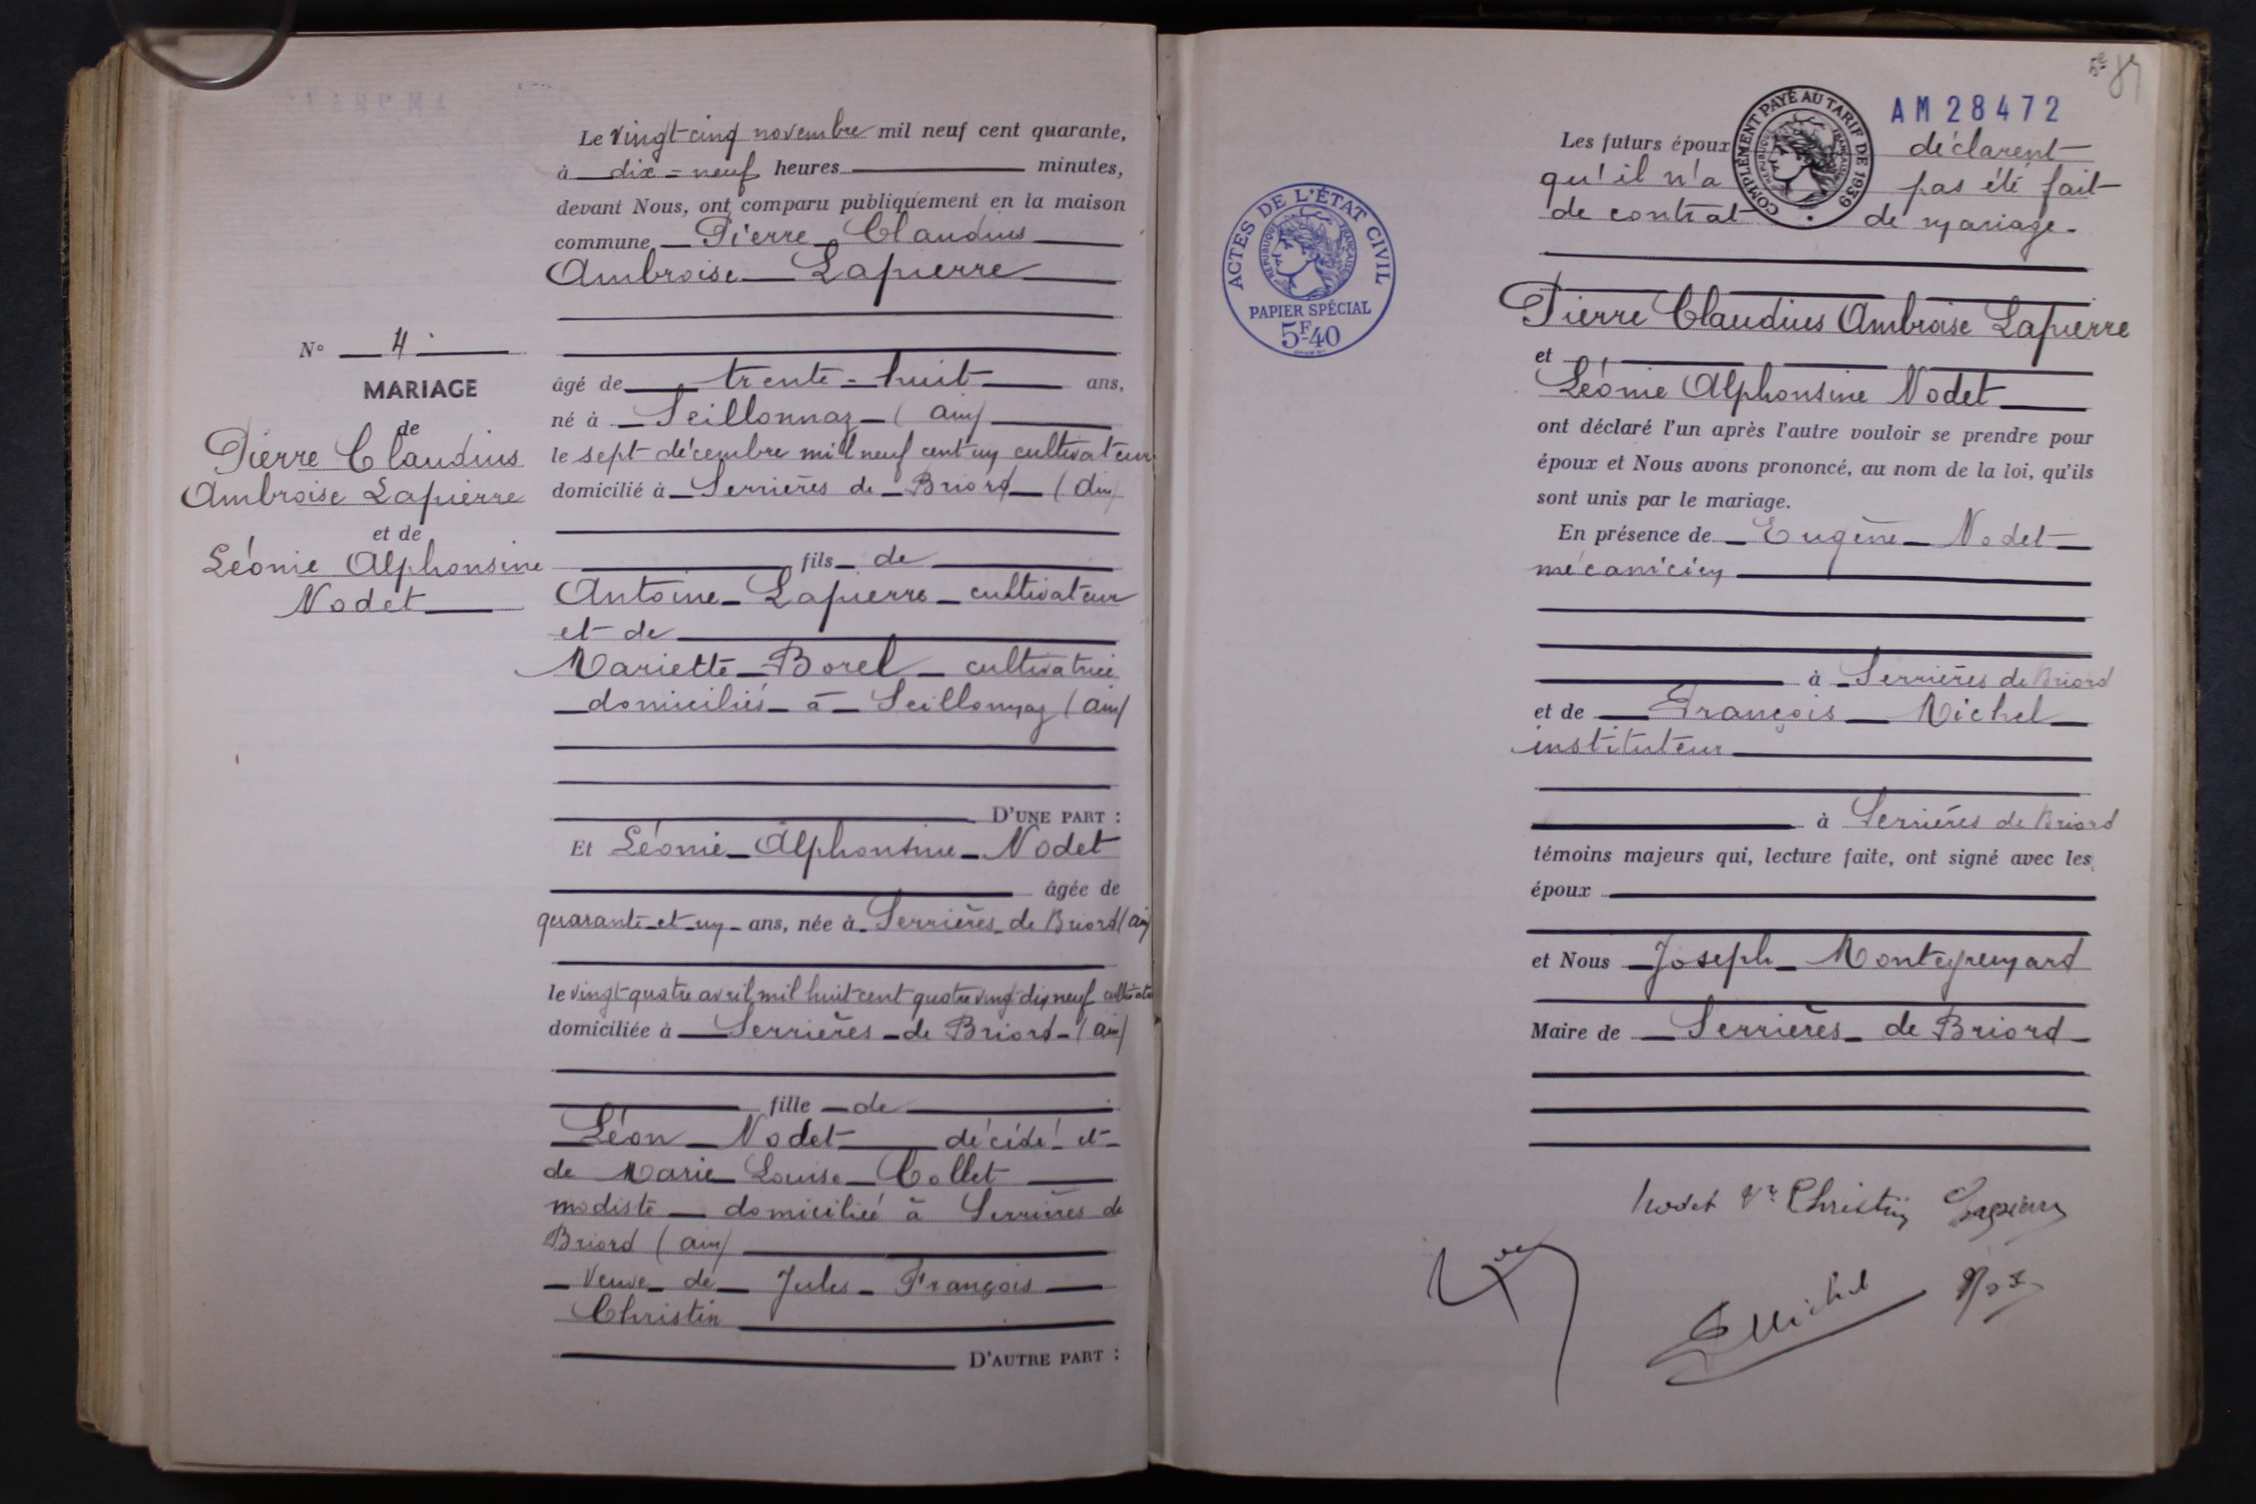 Le vingt-cinq novembre mil neuf cent quarante,
à dix-neuf heures minutes,
devant Nous, ont comparu publiquement en la maison
commune Pierre Claudius
Ambroise Lapierre
N° 4
MARIAGE
de
Pierre Claudius
Ambroise Lapierre
et de
Léonie Alphonsine
Nodet
âgé de trente-huit ans,
né à Seillonnaz (Ain)
le sept décembre mil neuf cent un cultivateur
domicilié à Serrières de Briord (Ain)
fils de
Antoine Lapierre cultivateur
et de
Mariette Borel cultivatrice
domiciliés à Seillonnaz (Ain)
D'UNE PART :
Et Léonie Alphonsine Nodet
âgée de
quarante-et-un ans, née à Serrières de Briord (Ain)
le vingt quatre avril mil huit cent quatre vingt dix neuf
domiciliée à Serrières de Briord (Ain)
fille de
Léon Nodet décédé et
de Marie Louise Collet
modiste domiciliée à Serrières de
Briord (Ain)
Veuve de Jules François
Christin
D'AUTRE PART :
AM 28472
COMPLÉMENT PAYÉ AU TARIF DE 1939
RÉPUBLIQUE FRANÇAISE
ACTES DE L'ÉTAT CIVIL
RÉPUBLIQUE FRANÇAISE
PAPIER SPÉCIAL
5F40
Les futurs époux déclarent
qu'il n'a pas été fait
de contrat de mariage.
Pierre Claudius Ambroise Lapierre
et
Léonie Alphonsine Nodet
ont déclaré l'un après l'autre vouloir se prendre pour
époux et Nous avons prononcé, au nom de la loi, qu'ils
sont unis par le mariage.
En présence de Eugène Nodet
mécanicien
à Serrières de Briord
et de François Michel
instituteur
à Serrières de Briord
témoins majeurs qui, lecture faite, ont signé avec les
époux
et Nous Joseph
Maire de Serrières de Briord
Nodet Vve Christin Lapierre
Michel